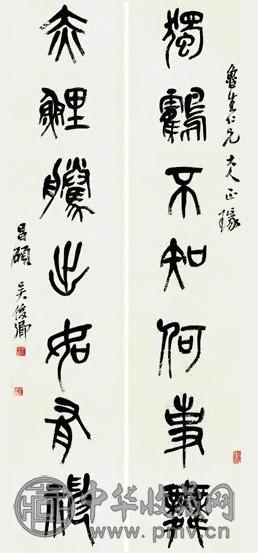 魯生仁兄大人正瑑
獨鶴不知何事舞
赤鯉騰出如有神
昌碩吳俊卿
中华收藏网
www.pmv.cn